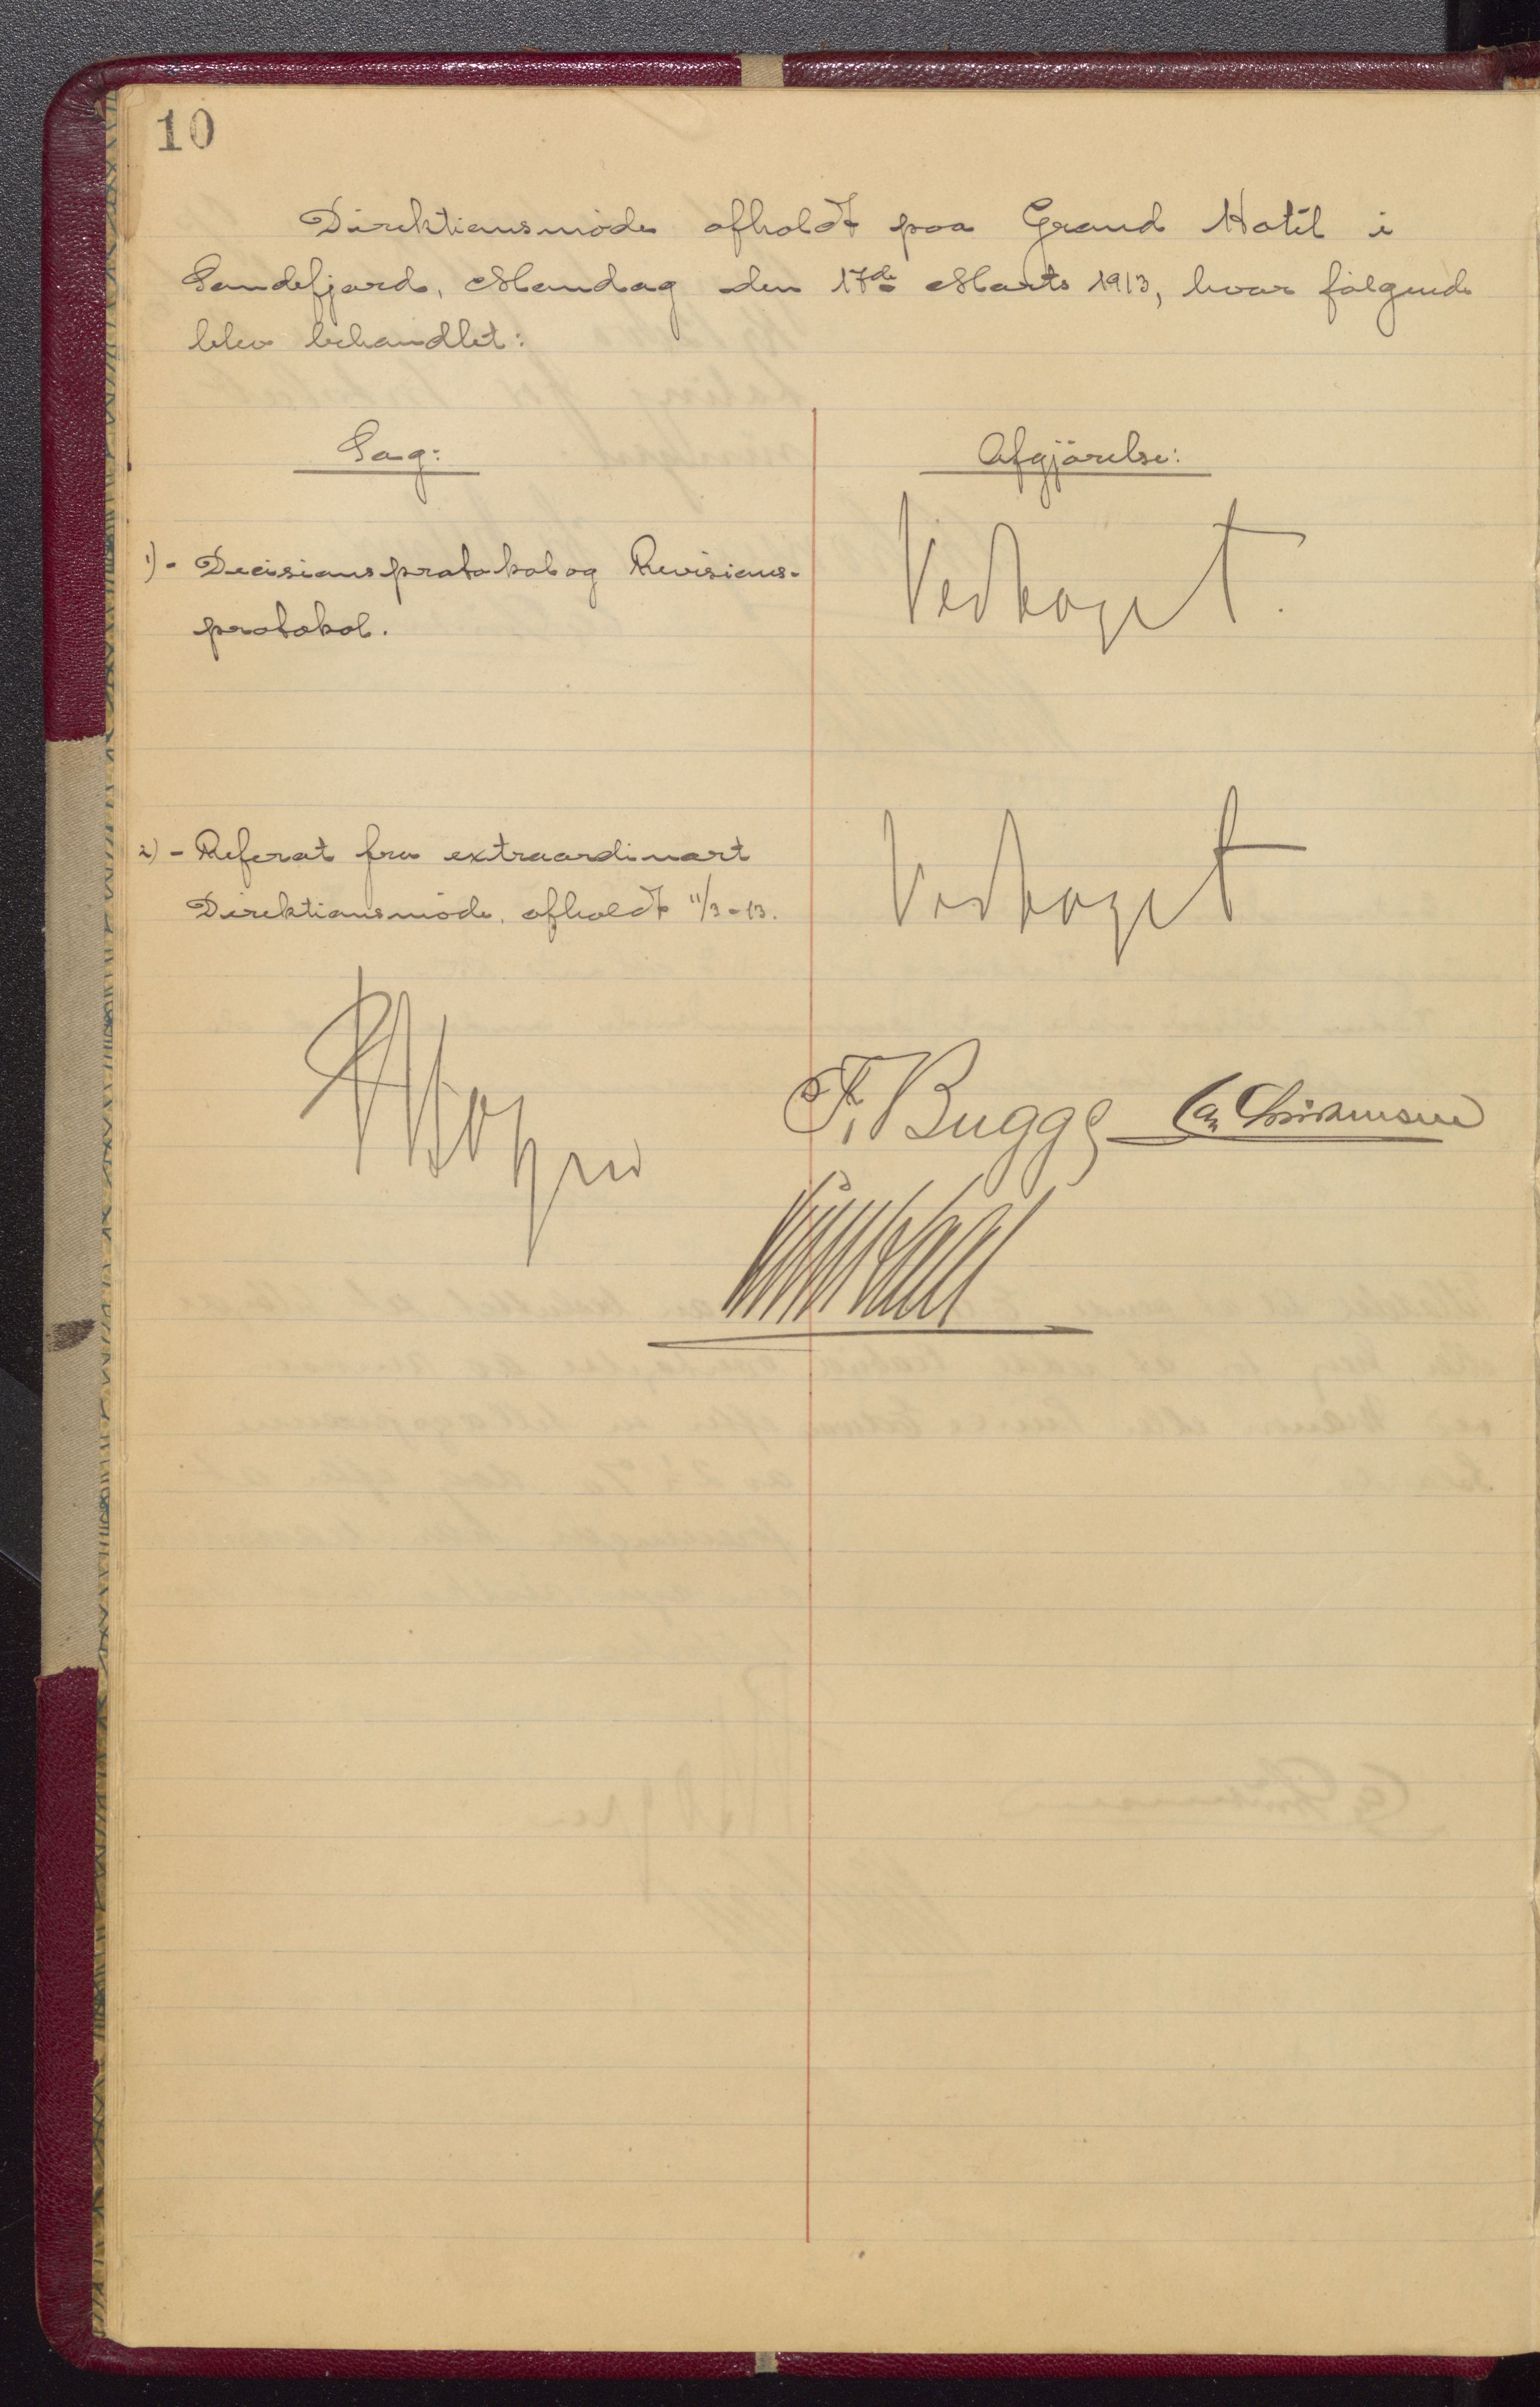 10
Direktionsmøde afholdt paa Grand Hotel i
Sandefjord, Mandag den 17de Marts 1913, hvor følgende
blev behandlet:
Sag:
Afgjørelse:
1) - Decisionsprotokol og Revisions-
protokol.
Vedtaget.
2) - Referat fra extraordinært
Direktionsmøde, afholdt 11/3-13.
Vedtaget
F. Bugge Chr Christensen